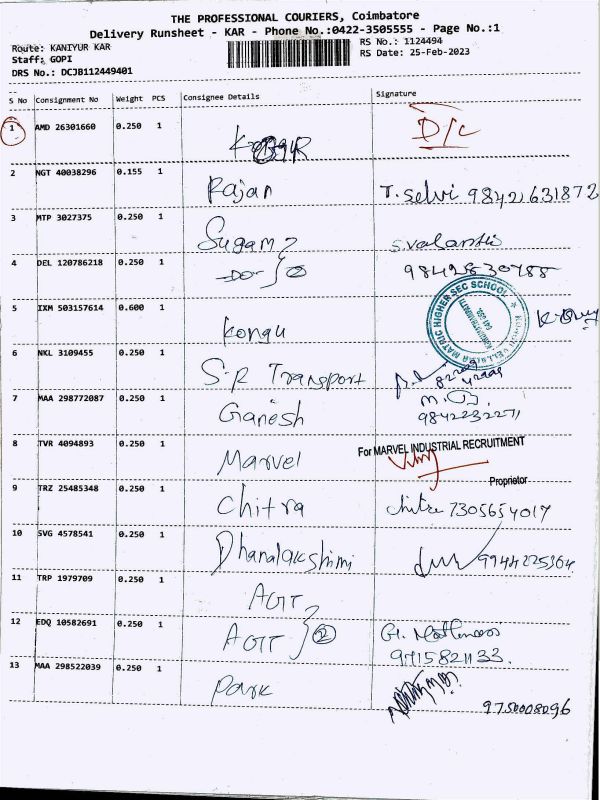 THE PROFESSIONAL COURIERS, Coimbatore
Delivery Runsheet - KAR - Phone No.:0422-3505555 - Page No.:1
Route: KANIYUR KAR
RS No.: 1124494
Staff: GOPI
RS Date: 25-Feb-2023
DRS No.: DCJB112449401
S No Consignment No Weight PCS Consignee Details Signature
1 AMD 26301660 0.250 1 D/C
2 NGT 40038296 0.155 1 Rajan T. Selvi 98421631872
3 MTP 3027375 0.250 1 Sugam 2 S.Valanthi
4 DEL 120786218 0.250 1 -DO- 9842830788
5 IXM 503157614 0.600 1 Kongu
KONGU VELLALAR MATRIC HIGHER SEC SCHOOL
6 NKL 3109455 0.250 1 S.R Transport
7 MAA 298772087 0.250 1 Ganesh
9842232271
8 TVR 4094893 0.250 1 Marvel For MARVEL INDUSTRIAL RECRUITMENT
Proprietor
9 TRZ 25485348 0.250 1 Chitra Chitra 7305654017
10 SVG 4578541 0.250 1 Dhanalakshimi 9944225364
11 TRP 1979709 0.250 1 AGT
12 EDQ 10582691 0.250 1 AGT 2
9715821133.
13 MAA 298522039 0.250 1 Park
9750008096